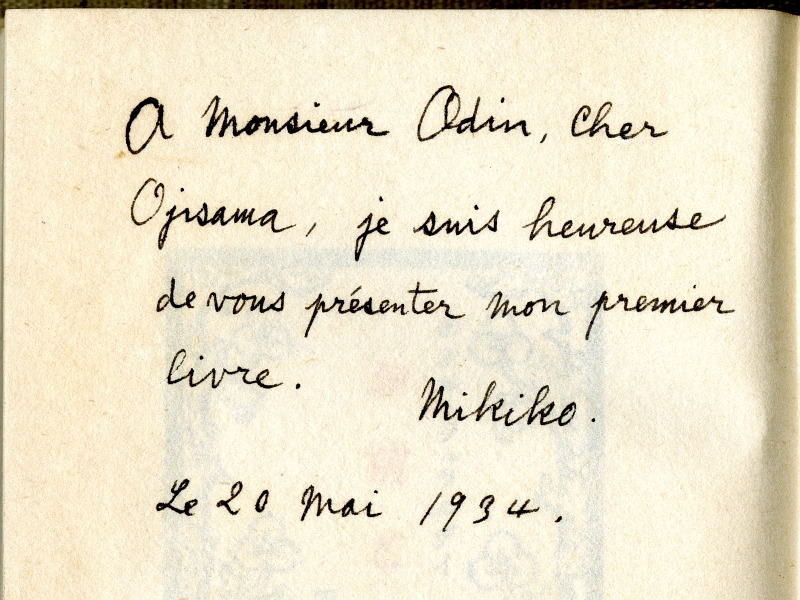 A Monsieur Odin, Cher
Ojisama, je suis heureuse
de vous présenter mon premier
livre.
Mikiko.
Le 20 Mai 1934.